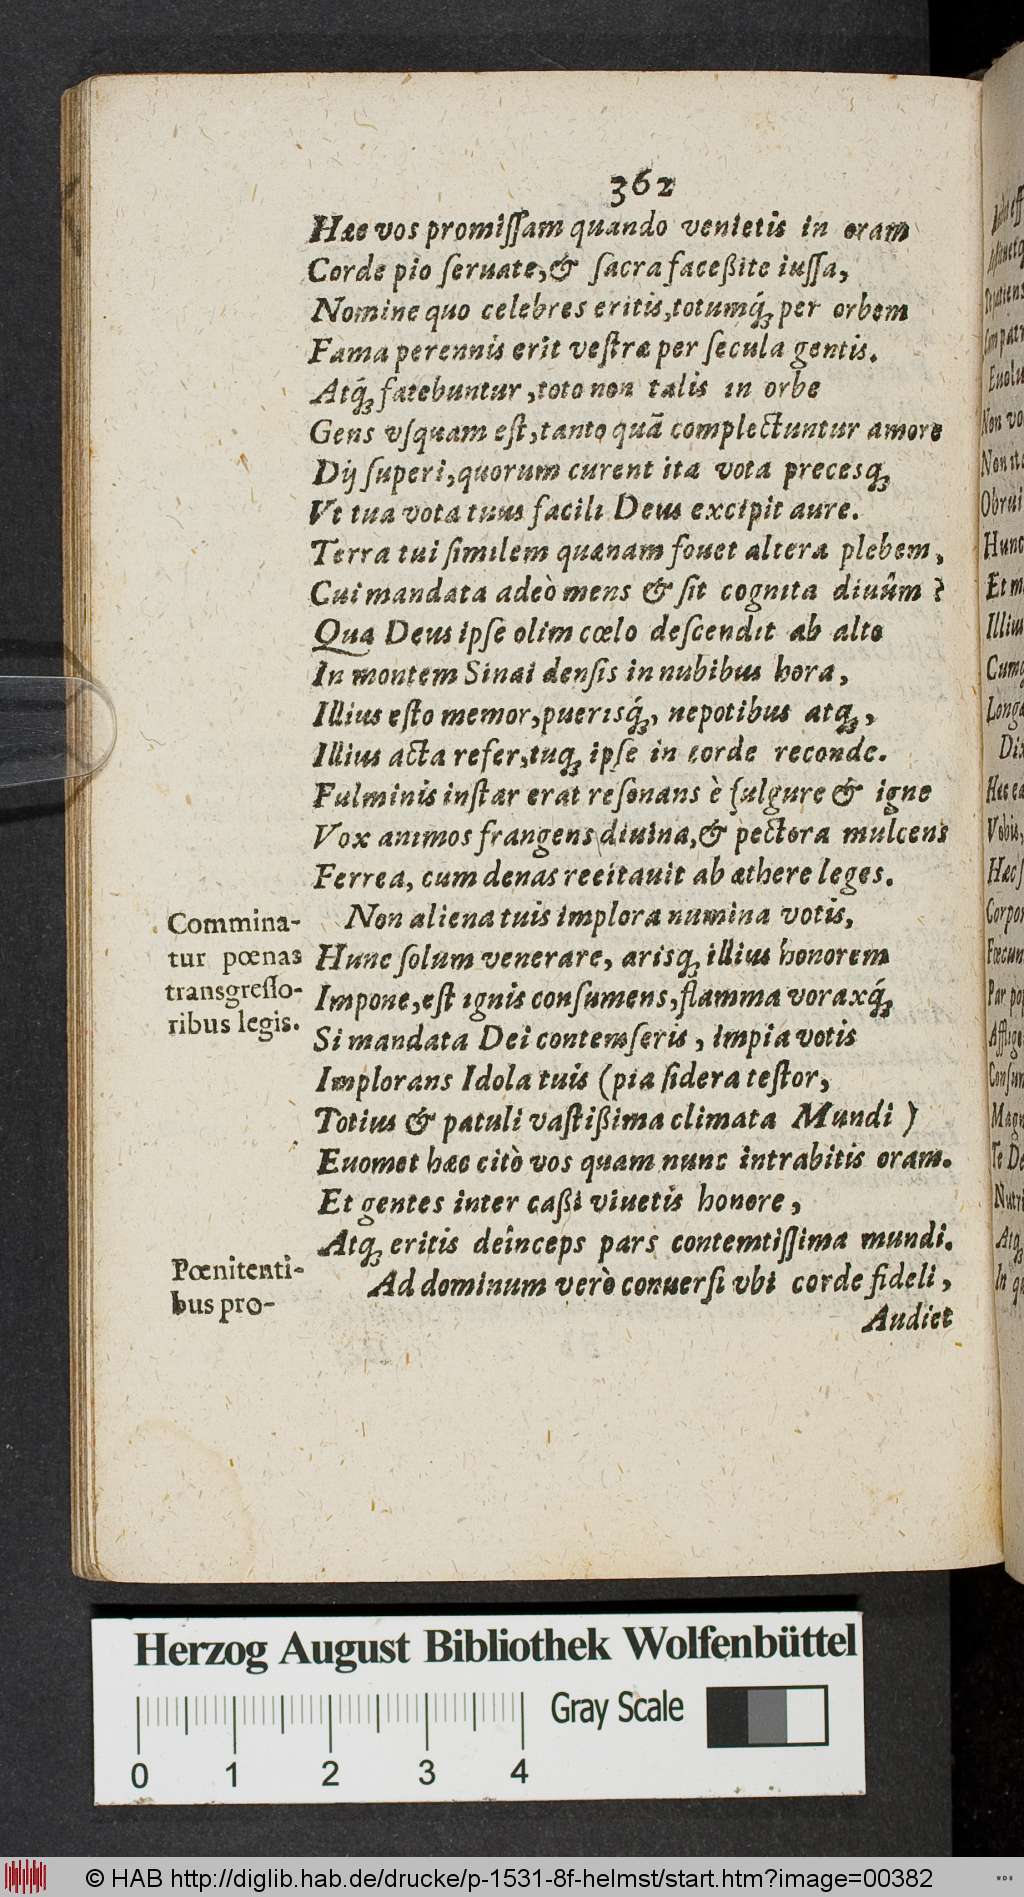 362
Hæc vos promiſſam quando venietis in oram
Corde pio ſeruate, & ſacra faceßite iuſſa,
Nomine quo celebres eritis, totumq́ꝫ per orbem
Fama perennis erit veſtræ per ſecula gentis.
Atq́ꝫ fatebuntur, toto non talis in orbe
Gens vſquam eſt, tanto quā complectuntur amore
Dij ſuperi, quorum curent ita vota precesqꝫ
Vt tua vota tuus facili Deus excipit aure.
Terra tui ſimilem quænam fouet altera plebem,
Cui mandata adeò mens & ſit cognita diuûm?
Qua Deus ipſe olim cœlo deſcendit ab alto
In montem Sinai denſis in nubibus hora,
Illius eſto memor, puerisq́ꝫ, nepotibus atqꝫ,
Illius acta refer, tuqꝫ ipſe in corde reconde.
Fulminis inſtar erat reſonans è fulgure & igne
Vox animos frangens diuina, & pectora mulcens
Ferrea, cum denas recitauit ab æthere leges.
Commina-
tur pœnas
transgreſſo-
ribus legis.
Non aliena tuis implora numina votis,
Hunc ſolum venerare, arisqꝫ illius honorem
Impone, eſt ignis conſumens, flamma voraxq́ꝫ
Si mandata Dei contemſeris, impia votis
Implorans Idola tuis (pia ſidera teſtor,
Totius & patuli vaſtißima climata Mundi)
Euomet hæc citò vos quam nunc intrabitis oram.
Et gentes inter caßi viuetis honore,
Atqꝫ eritis deinceps pars contemtiſſima mundi.
Pœnitenti-
bus pro-
Ad dominum verò conuerſi vbi corde fideli,
Audiet
Herzog August Bibliothek Wolfenbüttel
Gray Scale
0 1 2 3 4
© HAB http://diglib.hab.de/drucke/p-1531-8f-helmst/start.htm?image=00382